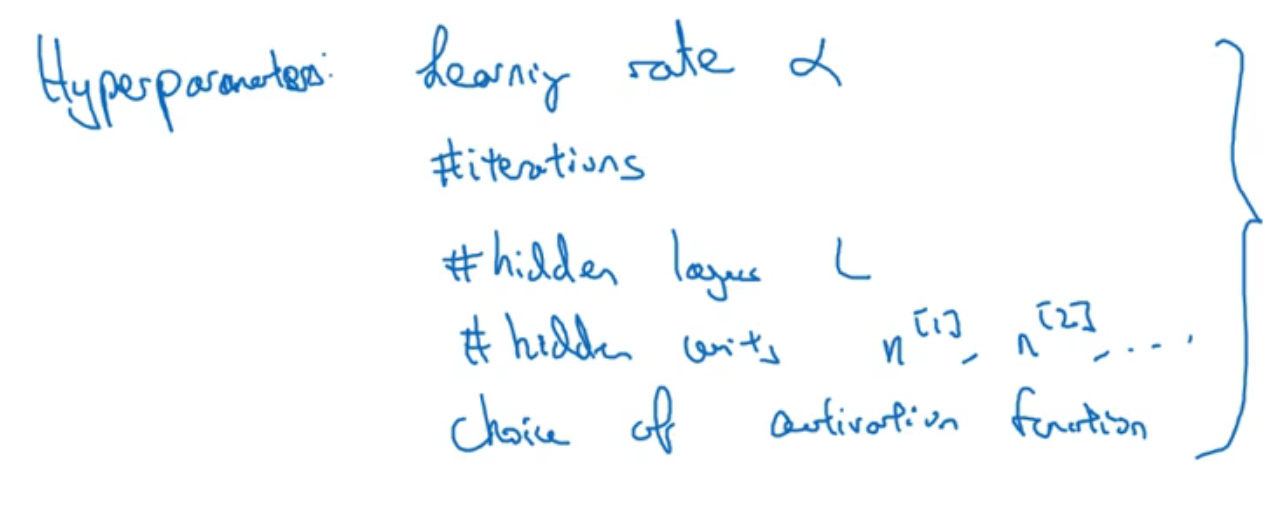 Hyperparameters: Learning rate α
#iterations
#hidden layers L
# hidden units n^[1], n^[2], ....
choice of activation function